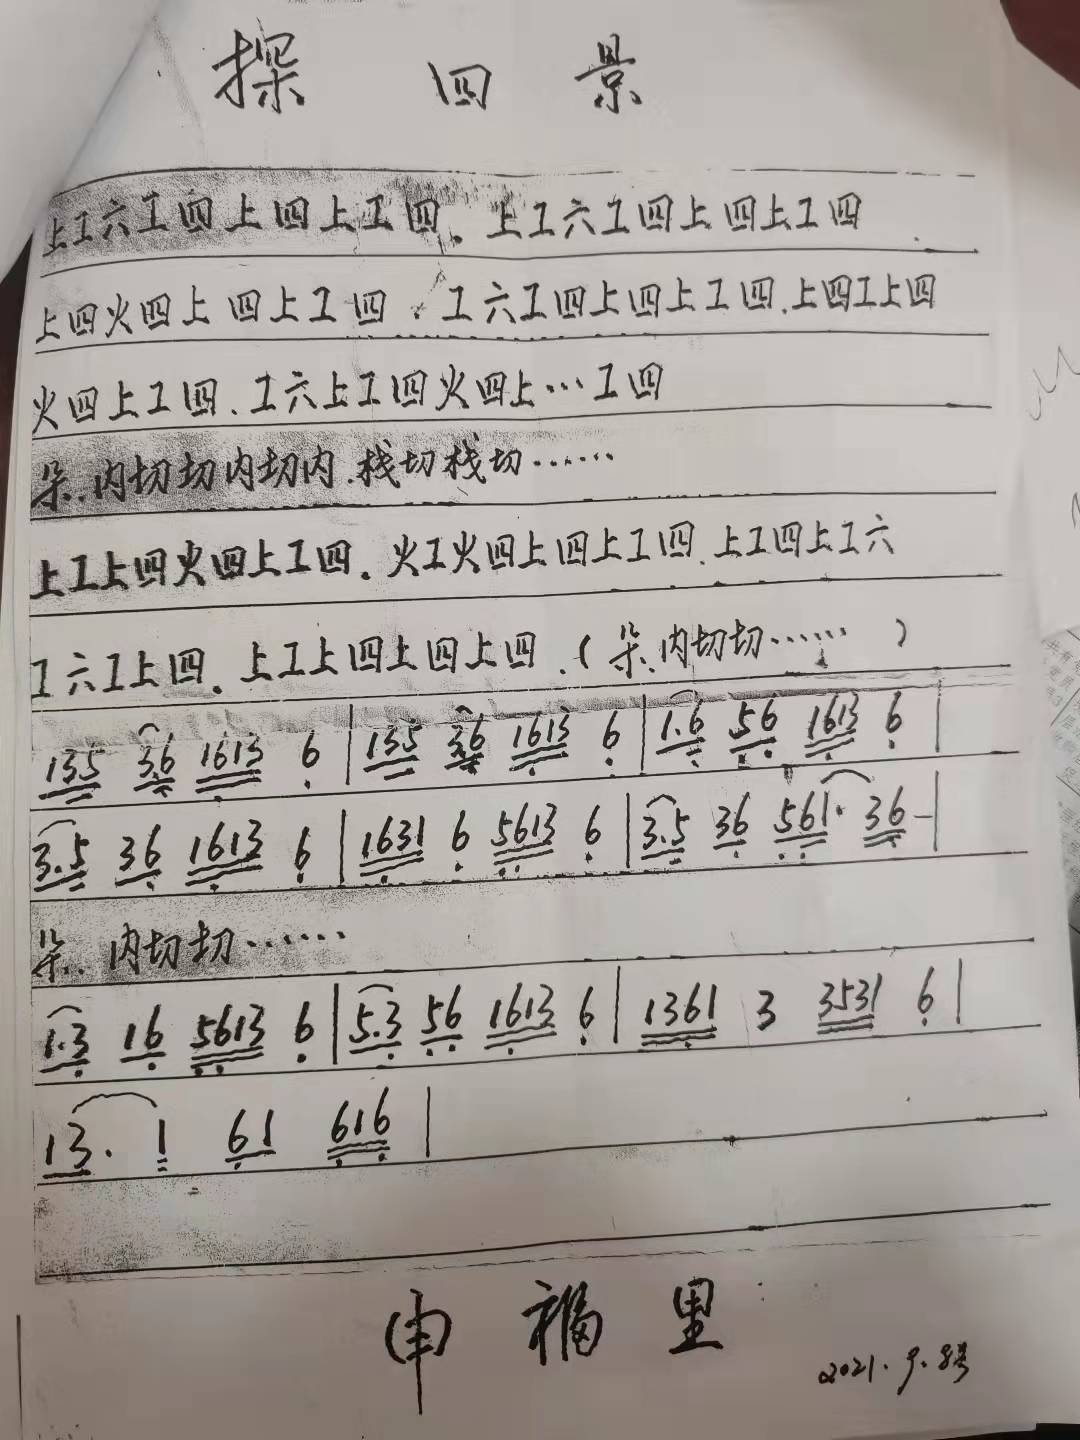 探四景
上工六工四上四上工四.上工六工四上四上工四
上四火四上四上工四.工六工四上四上工四.上四工上四
火四上工四.工六上工四火四上…工四
朵..内切切内切内.栈切栈切……
上工上四火四上工四.火工火四上四上工四.上工四上工六
工六工上四.上工上四上四上四.(朵.内切切……)
135 36 1613 6 | 135 36 1613 6 | 1.6 56 1613 6 |
3.5 36 1613 6 | 1631 6 5613 6 | 3.5 36 561. 36 - |
朵..内切切……
1.3 16 5613 6 | 5.3 56 1613 6 | 1361 3 3531 6 |
13. 1 61 616 |
申福里
2021.9.8号